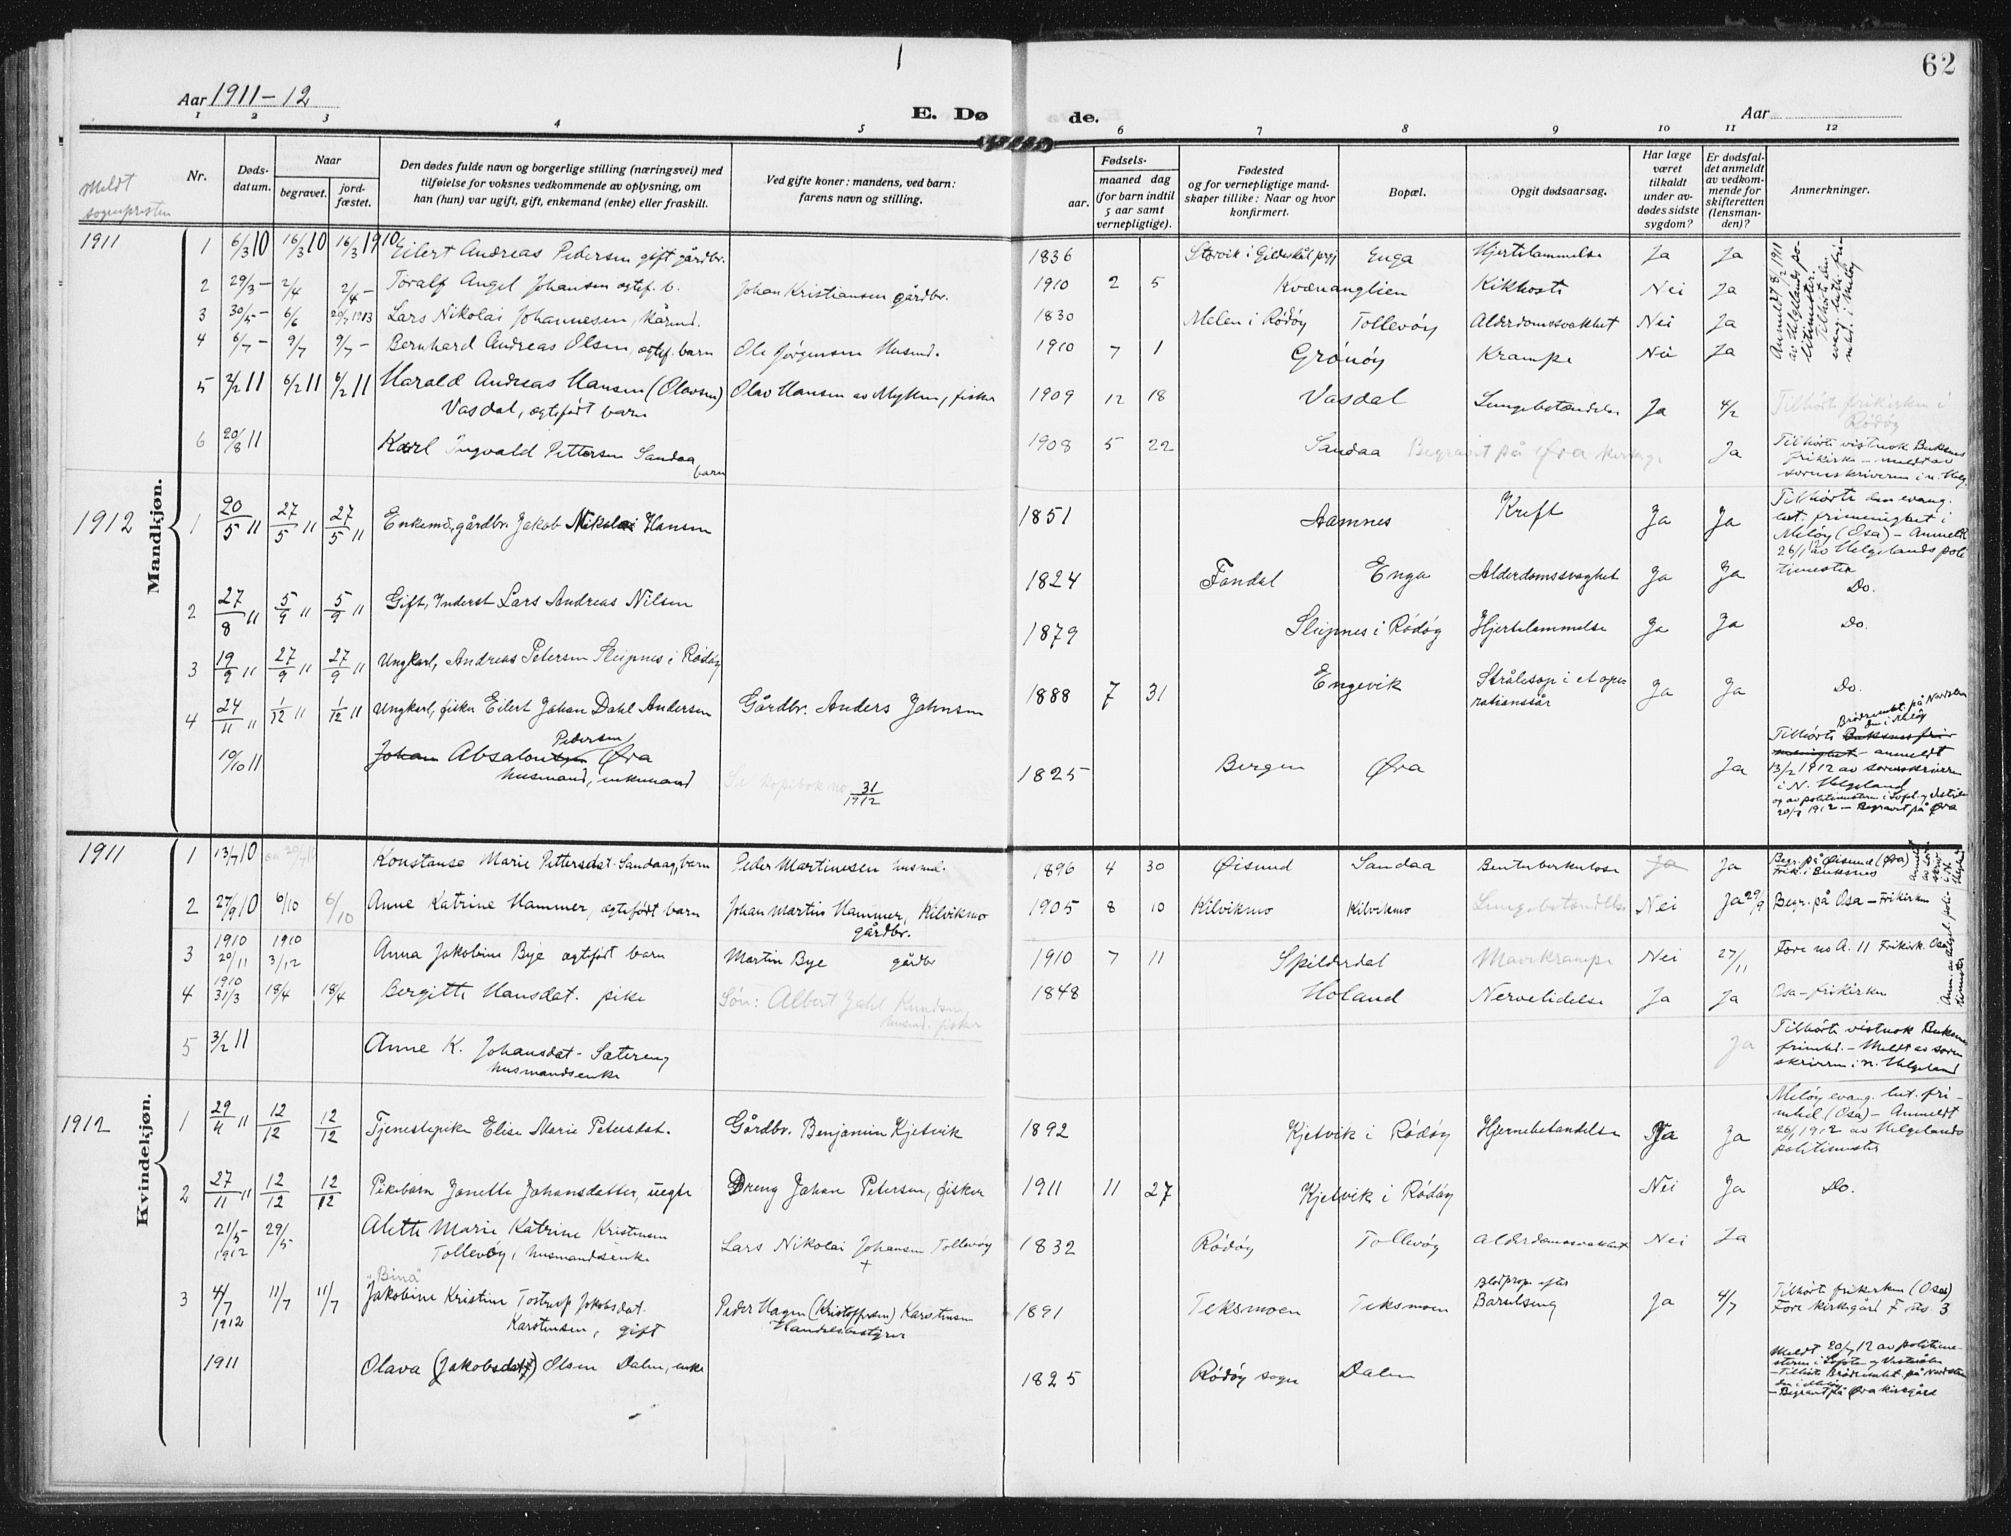 62
Aar 1911-12
E. Dø
de.
Aar
1 2 3 4 5 6 7 8 9 10 11 12
Meldt
sogneprsten
Nr.
Døds-
datum.
Naar
begravet.
jord-
fæstet.
Den dødes fulde navn og borgerlige stilling (næringsvei) med
tilføielse for voksnes vedkommende av oplysning, om
han (hun) var ugift, gift, enkemand (enke) eller fraskilt.
Ved gifte koner: mandens, ved barn:
farens navn og stilling.
Fødsels-
aar.
maaned dag
(for barn indtil
5 aar samt
vernepligtige).
Fødested
og for vernepligtige mand-
skaper tillike: Naar og hvor
konfirmert.
Bopæl.
Opgit dødsaarsag.
Har læge
været
tilkaldt
under av-
dødes sidste
sygdom?
Er dødsfal-
det anmeldt
av vedkom-
mende for
skifteretten
(lensman-
den)?
Anmerkninger.
Mandkjøn.
1911 1 6/3 10 16/3 10 16/3 1910 Eilert Andreas Pedersen gift gårdbr. 1836 Storvik i Gildeskål prgj Enga Hjertelammelse Ja Ja
2 29/3 - 2/4 2/4 - Toralf Angel Johansen ektef. b. Johan Kristiansen gårdbr. 1910 2 5 Kvænanglien Kikhoste Nei Ja
3 30/5 - 6/6 20/7 1913 Lars Nikolai Johannesen, kårmd. 1830 Melen i Rödöy Tollevöy Alderdomssvakhet Nei Ja
4 6/7 - 9/7 9/7 - Bernhard Andreas Olsen, egtef. barn Ole Jørgensen Husmd. 1910 7 1 Grönöy Krampe Nei Ja
5 2/2 11 6/2 11 6/2 11 Harald Andreas Hansen (Olavsen) Olav Hansen av Myken, fisker 1909 12 18 Vasdal Lungebetændelse Ja 4/2 Tilhörte frikirken i
Vasdal, egtefört barn
Rödöy
6 20/8 11 Karl Ingvald Pettersen Sandaa 1908 5 22 Sandaa Begravet på Øra kirkeg. Ja Tilhörte vistnok Buksnes
barn
frikirke - meldt av
sorenskriveren i n. Helg.
1912 1 20/5 11 27/5 11 27/5 11 Enkemd., gårdbr. Jakob Nikolai Hansen 1851 Aamnes Kreft Ja Ja Tilhörte den evang.
lut. frimenighet i
Meløy (Osa) - Anmeldt
26/1 12 av Helgelands poli
timester
2 27/8 11 5/9 11 5/9 11 Gift, Inderst Lars Andreas Nilsen 1824 Fondal Enga Alderdomssvaghet Ja Ja Do.
3 19/9 11 27/9 11 27/9 11 Ungkarl, Andreas Petersen Sleipnes i Rödöy 1879 Sleipnes i Rödöy Hjertelammelse Ja Ja Do.
4 24/11 11 1/12 11 1/12 11 Ungkarl, fisker Eilert Johan Dahl Andersen Gårdbr. Anders Johnsen 1888 7 31 Engevik Strålesop i et ope- Ja Ja Do.
rationssår
10/10 11 Johan Absalonsen Pedersen Øra 1825 Bergen Øra Ja
husmand, enkemand Se kopibok no 31/1912
Tilhörte Buksnes fri-
menighet - anmeldt
13/2 1912 av sorenskriveren
i N. Helgeland
og av politimesteren i Lofot. og Vesterålen
20/7 1912 - Begravet på Øra
Kvindekjøn.
1911 1 13/7 10 ca 20/7 10 Konstanse Marie Pettersdat. Sandaag, barn Peder Martinesen husmd. 1896 4 30 Øisund Sandaa Bentuberkulose Ja Ja Begr. på Øisund (Øra)
Frik. i Buksnes
2 27/9 10 6/10 6/10 Anne Katrine Hammer, egtefört barn Johan Martin Hammer, Kilvikmo 1905 8 10 Kilvikmo Kilvikmo Lungebetændelse Nei Ja 29/9 Begr. på Osa - Frikirken
gårdbr.
3 1910 20/11 1910 3/12 Anna Jakobine Bye egtefört barn Martin Bye gårdbr 1910 7 11 Spilderdal Mavekrampe Nei 27/11 Fore no A. 11 Frikirk. Osa
4 1910 31/3 18/4 18/4 Bergitte Hansdat. pike Søn: Albert Dahl Knudsen, 1848 Holand Nervelidelse Ja Ja Osa - frikirken
husmd. fisker
5 3/2 11 Anne K. Johansdat. Sætereng Ja Tilhörte vistnok Buksnes
husmandsenke
frimhd. - Meldt av soren
skriveren i n. Helgeland
1912 1 29/4 11 12/12 12/12 Tjenestepike Elise Marie Petersdat. Gårdbr. Benjamin Kjelvik 1892 Kjelvik i Rödöy Hjernebetændelse Ja Ja Meløy evang. lut. fri-
mhed (Osa) - Anmeldt
26/1 1912 av Helgelands
politimester
2 27/11 11 12/12 12/12 Pikebarn Janette Johansdatter, uegte Dreng Johan Petersen, fisker 1911 11 27 Kjelvik i Rödöy Nei Ja Do.
21/5 1912 29/5 Alette Marie Katrine Kristensen Lars Nikolai Johansen Tollevöy 1832 Rödöy Tollevöy Alderdomssvakhet Nei Ja
Tollevöy, husmandsenke
"Bina"
3 4/7 1912 11/7 11/7 Jakobine Kristine Tostrup Jakobsdat. Peder Hagen (Kristoffersen) Karstensen 1891 Teksmoen Teksmoen Blodprop efter Ja 4/7 Tilhörte frikirken (Osa)
Karstensen, gift Handelsbestyrer Barselseng Fore kirkegård F. no. 3
1911 Olava (Jakobsdat) Olsen Dalen, enke 1825 Rödöy sogn Dalen
Meldt 20/7 12 av politime-
steren i Lofoten og Vesterålen
- Tilhörte Brödremht. på Nordlan
den i Meløy
- Begravet på Øra kirkegård